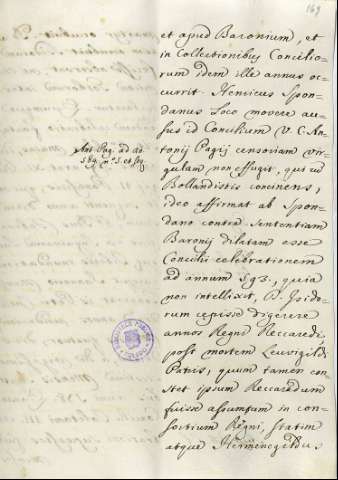 169
et apud Baronium, et
in Collectionibus Concilio-
rum idem ille annus oc-
currit. Henricus Spon-
danus loco movere au-
sus id Concilium V. C. An-
tonij Pagij censoriam vir-
gulam non effugit, qui
Bollandistis concinens,
ideo affirmat ab Spon-
dano contra sententiam
Baronij dilatam esse
Concilii celebrationem
ad annum 593., quia
non intellixit, D. Isido-
rum cepisse digerere
annos Regni Reccaredi,
post mortem Leuvigildi
Patris, quum tamen con
stet ipsum Reccaredum
fuisse assumtum in con-
sortium Regni, statim
atque Hermenegildus
Ant. Pag. ad an
589. nº. 5. et seq